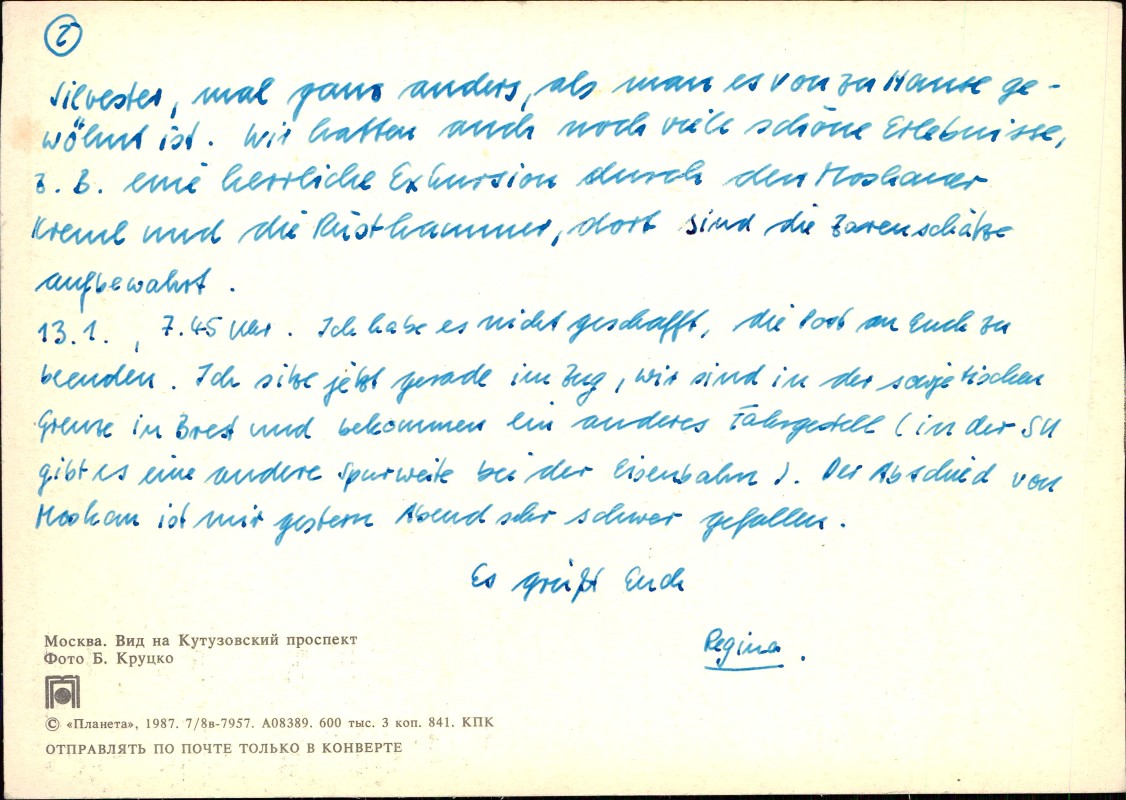 2
Silvester, mal ganz anders, als man es von zu Hause ge-
wöhnt ist. Wir hatten auch noch viele schöne Erlebnisse,
z. B. eine herrliche Exkursion durch den Moskauer
Kreml und die Rüstkammer, dort sind die Zarenschätze
aufbewahrt.
13.1., 7.45 Uhr. Ich habe es nicht geschafft, die Post an Euch zu
beenden. Ich sitze jetzt gerade im Zug, wir sind in der sowjetischen
Grenze in Brest und bekommen ein anderes Fahrgestell (in der SU
gibt es eine andere Spurweite bei der Eisenbahn). Der Abschied von
Moskau ist mir gestern Abend sehr schwer gefallen.
Es grüßt Euch
Regina.
Москва. Вид на Кутузовский проспект
Фото Б. Круцко
© «Планета», 1987. 7/8в-7957. А08389. 600 тыс. 3 коп. 841. КПК
ОТПРАВЛЯТЬ ПО ПОЧТЕ ТОЛЬКО В КОНВЕРТЕ